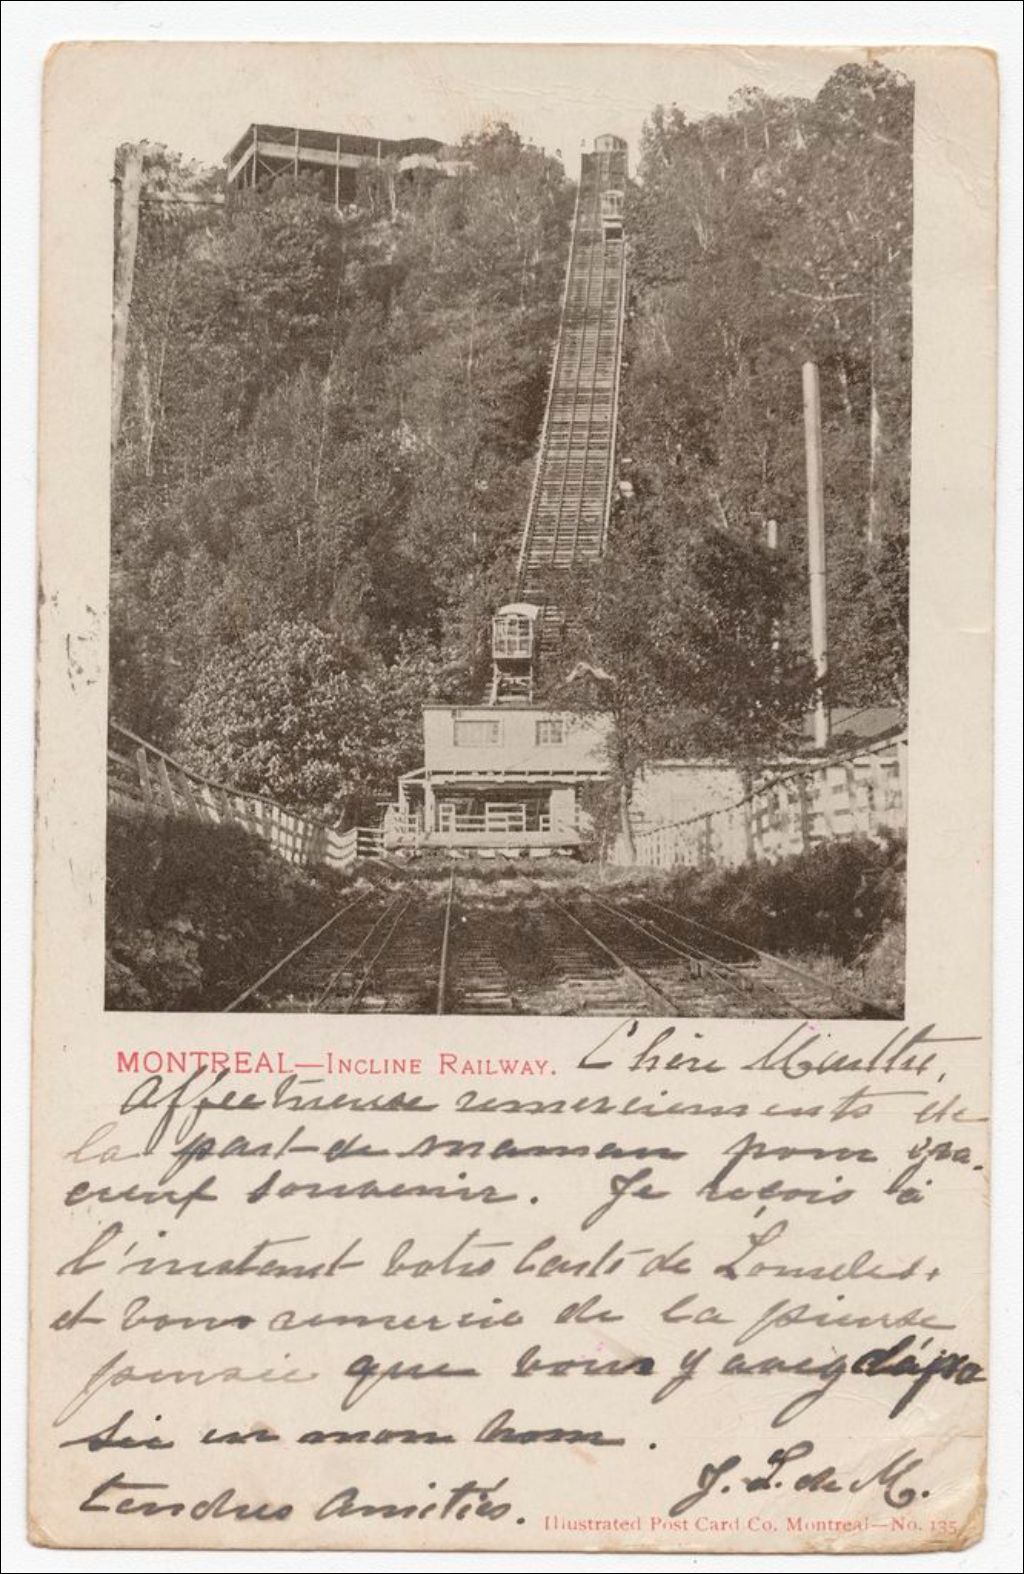 MONTREAL—INCLINE RAILWAY.
Chère
Affectueux remerciements de
la part de maman pour gra-
cieux souvenir. Je reçois à
l'instant votre carte de Lourdes,
et vous remercie de la pieuse
pensée que vous y avez dépo
sée en mon nom.
Tendres Amitiés.
J. L. de M.
Illustrated Post Card Co. Montreal—No. 135